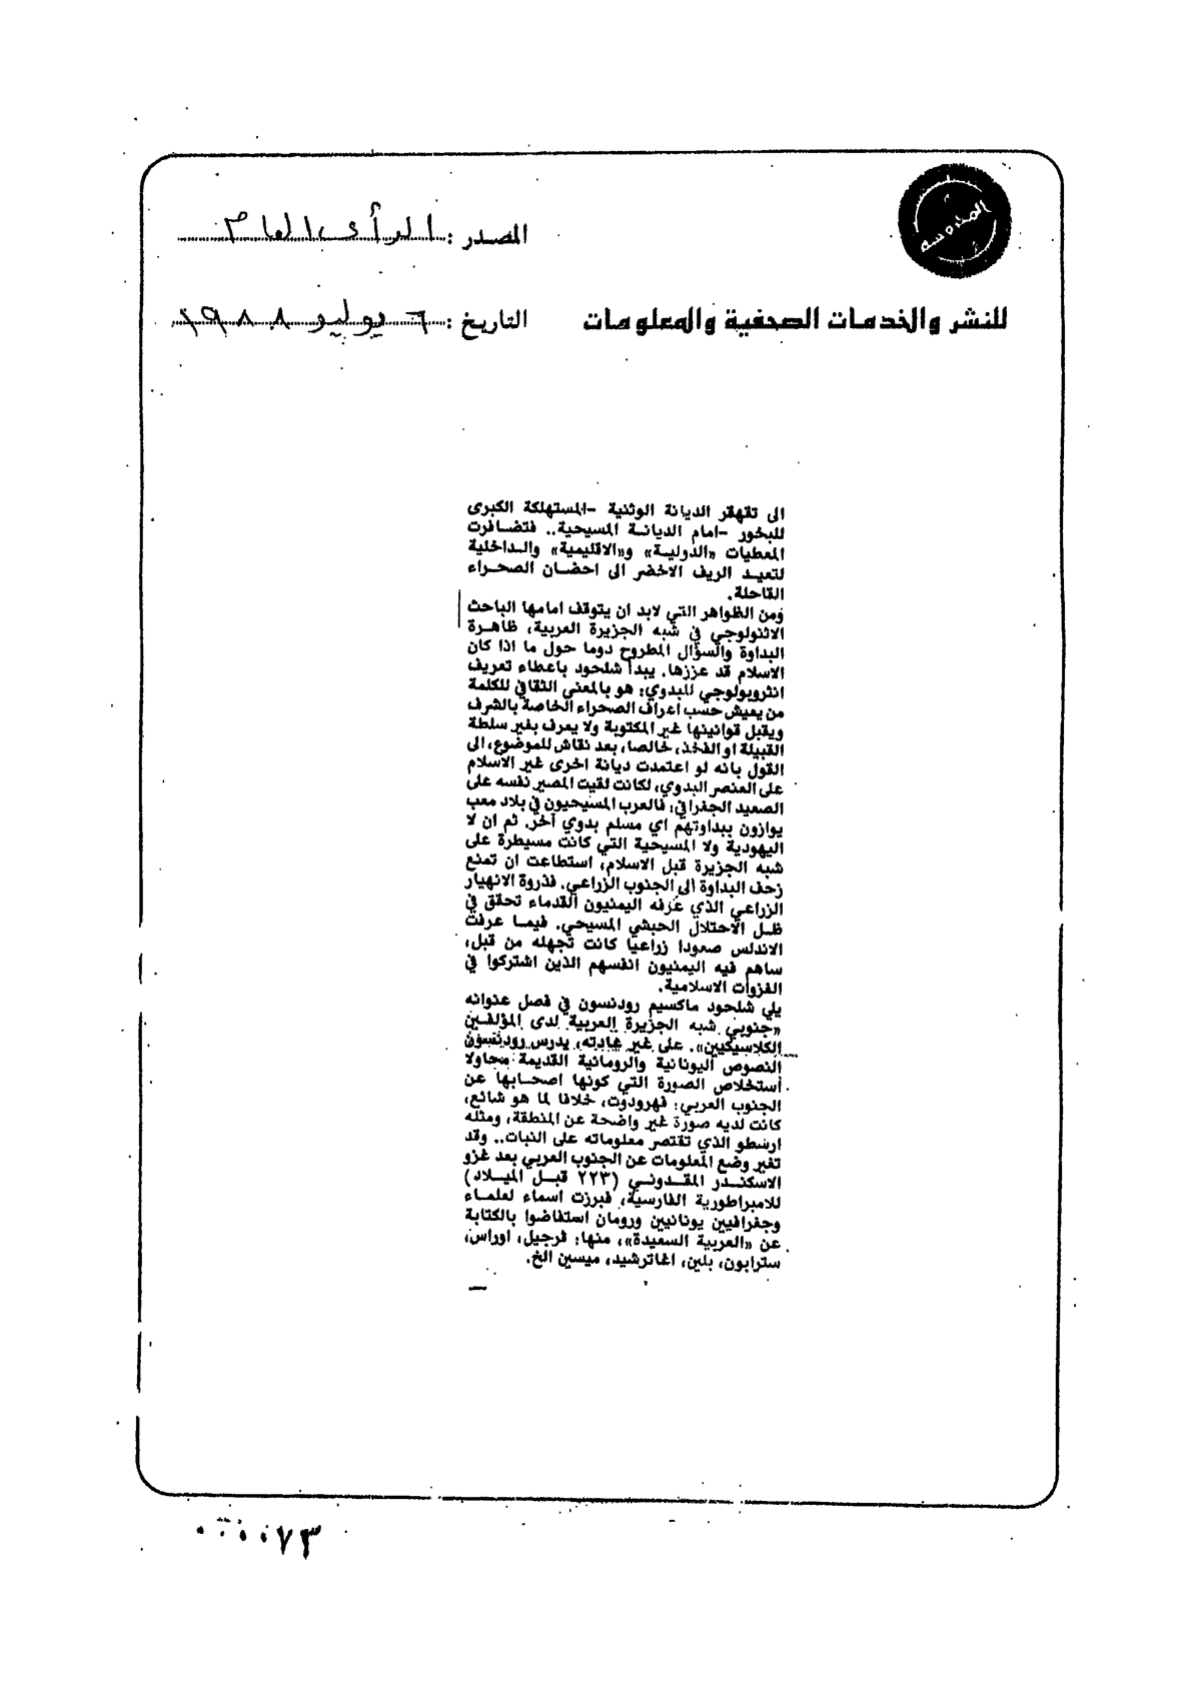 المحروسة
المصدر : الرأى العام
للنشر والخدمات الصحفية والمعلومات
التاريخ : ٦ يوليو ١٩٨٨
الى تقهقر الديانة الوثنية -المستهلكة الكبرى
للبخور -امام الديانة المسيحية.. فتضافرت
المعطيات «الدولية» و«الاقليمية» والداخلية
لتعيد الريف الاخضر الى احضان الصحراء
القاحلة.
ومن الظواهر التي لابد ان يتوقف امامها الباحث
الاثنولوجي في شبه الجزيرة العربية، ظاهرة
البداوة والسؤال المطروح دوما حول ما اذا كان
الاسلام قد عززها. يبدأ شلحود باعطاء تعريف
انثروبولوجي للبدوي: هو بالمعنى الثقافي للكلمة
من يعيش حسب اعراف الصحراء الخاصة بالشرف
ويقبل قوانينها غير المكتوبة ولا يعرف بغير سلطة
القبيلة او الفخذ، خالصا، بعد نقاش للموضوع، الى
القول بانه لو اعتمدت ديانة اخرى غير الاسلام
على العنصر البدوي، لكانت لقيت المصير نفسه على
الصعيد الجغرافي: فالعرب المسيحيون في بلاد معب
يوازون ببداوتهم اي مسلم بدوي آخر. ثم ان لا
اليهودية ولا المسيحية التي كانت مسيطرة على
شبه الجزيرة قبل الاسلام، استطاعت ان تمنع
زحف البداوة الى الجنوب الزراعي. فذروة الانهيار
الزراعي الذي عرفه اليمنيون القدماء تحقق في
ظل الاحتلال الحبشي المسيحي. فيما عرفت
الاندلس صعودا زراعيا كانت تجهله من قبل،
ساهم فيه اليمنيون انفسهم الذين اشتركوا في
الغزوات الاسلامية.
يلي شلحود ماكسيم رودنسون في فصل عنوانه
«جنوبي شبه الجزيرة العربية لدى المؤلفين
الكلاسيكيين». على غير عادته، يدرس رودنسون
النصوص اليونانية والرومانية القديمة محاولا
استخلاص الصورة التي كونها اصحابها عن
الجنوب العربي: فهرودوت، خلافا لما هو شائع،
كانت لديه صورة غير واضحة عن المنطقة، ومثله
ارسطو الذي تقتصر معلوماته على النبات.. وقد
تغير وضع المعلومات عن الجنوب العربي بعد غزو
الاسكندر المقدوني (٢٢٣ قبل الميلاد)
للامبراطورية الفارسية، فبرزت اسماء لعلماء
وجغرافيين يونانيين ورومان استفاضوا بالكتابة
عن «العربية السعيدة»، منها: فرجيل، اوراس،
سترابون، بلين، اغاترشيد، ميسين الخ.